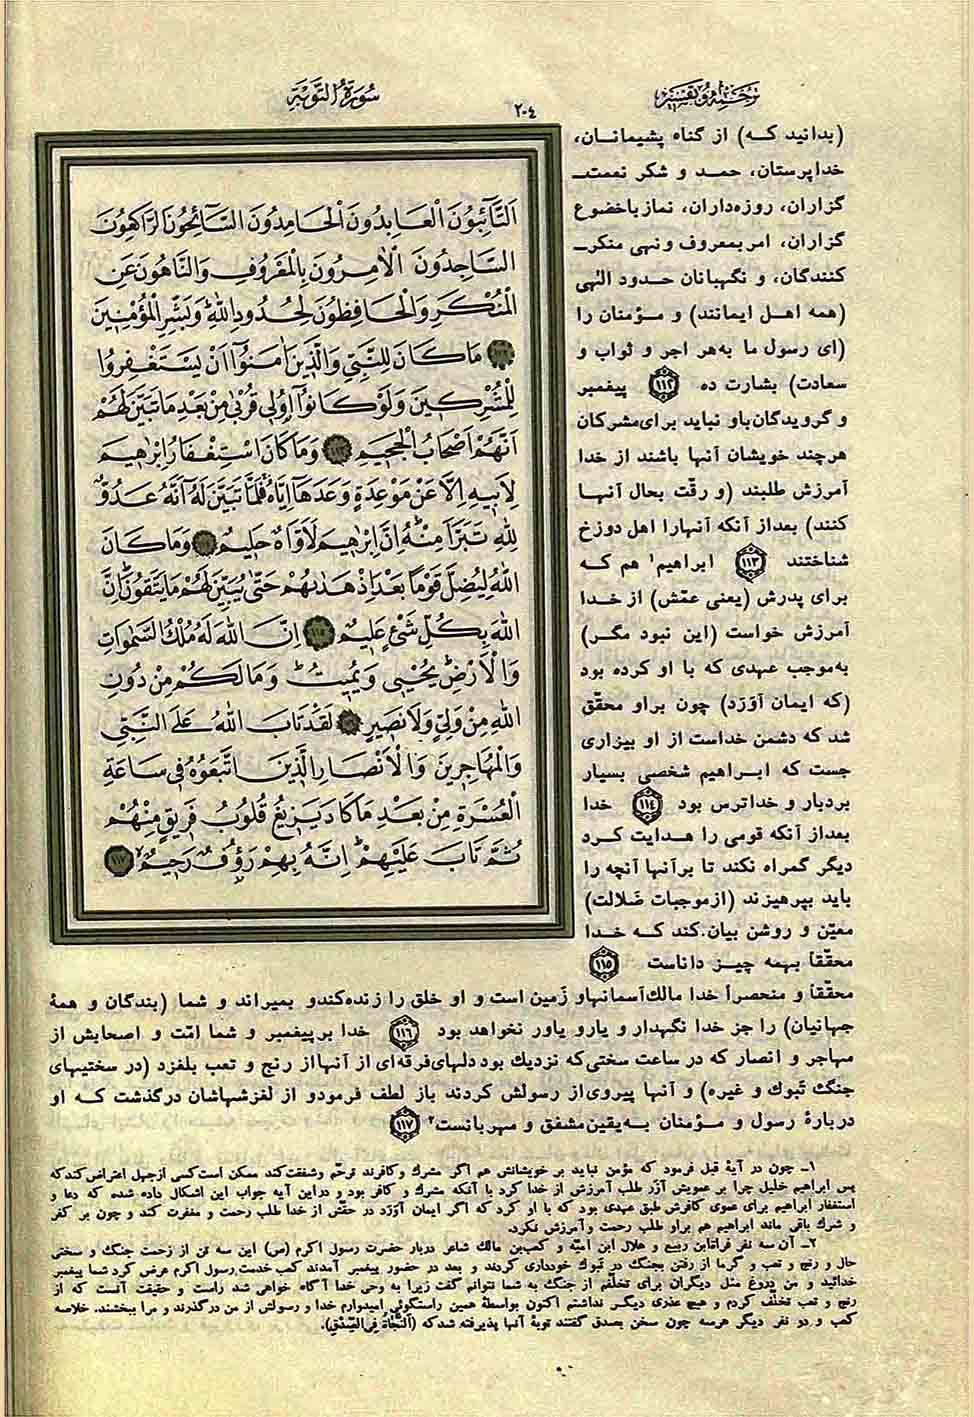 ترجمه و تفسیر
۲۰٤
سورة التوبة
التَّآئِبُونَ الْعَابِدُونَ الْحَامِدُونَ السَّآئِحُونَ الرَّاكِعُونَ
السَّاجِدُونَ الْاٰمِرُونَ بِالْمَعْرُوفِ وَالنَّاهُونَ عَنِ
الْمُنْكَرِ وَالْحَافِظُونَ لِحُدُودِ اللّٰهِ وَبَشِّرِ الْمُؤْمِنِينَ
مَا كَانَ لِلنَّبِيِّ وَالَّذِينَ اٰمَنُوٓا اَنْ يَسْتَغْفِرُوا
لِلْمُشْرِكِينَ وَلَوْ كَانُوٓا اُولِي قُرْبٰى مِنْ بَعْدِ مَا تَبَيَّنَ لَهُمْ
اَنَّهُمْ اَصْحَابُ الْجَحِيمِ وَمَا كَانَ اسْتِغْفَارُ اِبْرٰهِيمَ
لِاَبِيهِ اِلَّا عَنْ مَوْعِدَةٍ وَعَدَهَآ اِيَّاهُ فَلَمَّا تَبَيَّنَ لَهُ اَنَّهُ عَدُوٌّ
لِلّٰهِ تَبَرَّاَ مِنْهُ اِنَّ اِبْرٰهِيمَ لَاَوَّاهٌ حَلِيمٌ وَمَا كَانَ
اللّٰهُ لِيُضِلَّ قَوْمًا بَعْدَ اِذْ هَدٰىهُمْ حَتّٰى يُبَيِّنَ لَهُمْ مَا يَتَّقُونَ اِنَّ
اللّٰهَ بِكُلِّ شَيْءٍ عَلِيمٌ ۱۱۵ اِنَّ اللّٰهَ لَهُ مُلْكُ السَّمٰوَاتِ
وَالْاَرْضِ يُحْيِي وَيُمِيتُ وَمَا لَكُمْ مِنْ دُونِ
اللّٰهِ مِنْ وَلِيٍّ وَلَا نَصِيرٍ لَقَدْ تَابَ اللّٰهُ عَلَى النَّبِيِّ
وَالْمُهَاجِرِينَ وَالْاَنْصَارِ الَّذِينَ اتَّبَعُوهُ فِي سَاعَةِ
الْعُسْرَةِ مِنْ بَعْدِ مَا كَادَ يَزِيغُ قُلُوبُ فَرِيقٍ مِنْهُمْ
ثُمَّ تَابَ عَلَيْهِمْ اِنَّهُ بِهِمْ رَؤُفٌ رَحِيمٌ ۱۱۷
(بدانید که) از گناه پشیمانان،
خداپرستان، حمد و شکر نعمت‌ـ
گزاران، روزه‌داران، نماز باخضوع
گزاران، امر بمعروف و نهی منکر‌ـ
کنندگان، و نگهبانان حدود الٰهی
(همه اهل ایمانند) و مؤمنان را
(ای رسول ما به‌هر اجر و ثواب و
سعادت) بشارت ده ۱۱۲ پیغمبر
و گرویدگان باو نباید برای مشرکان
هرچند خویشان آنها باشند از خدا
آمرزش طلبند (و رقّت بحال آنها
کنند) بعداز آنکه آنهارا اهل دوزخ
شناختند ۱۱۳ ابراهیم۱ هم که
برای پدرش (یعنی عمّش) از خدا
آمرزش خواست (این نبود مگر)
به‌موجب عهدی که با او کرده بود
(که ایمان آوَرَد) چون براو محقّق
شد که دشمن خداست از او بیزاری
جست که ابراهیم شخصی بسیار
بردبار و خداترس بود ۱۱٤ خدا
بعداز آنکه قومی را هدایت کرد
دیگر گمراه نکند تا برآنها آنچه را
باید بپرهیزند (از موجبات ضَلالت)
معیّن و روشن بیان.کند که خدا
محقّقاً بهمه چیز داناست ۱۱۵
محقّقاً و منحصراً خدا مالك آسمانها و زمین است و او خلق را زنده‌کند و بمیراند و شما (بندگان و همهٔ
جهانیان) را جز خدا نگهدار و یار و یاور نخواهد بود ۱۱۶ خدا برپیغمبر و شما امّت و اصحابش از
مهاجر و انصار که در ساعت سختی که نزدیك بود دلهای فرقه‌ای از آنها از رنج و تعب بلغزد (در سختیهای
جنگ تبوك و غیره) و آنها پیروی از رسولش کردند باز لطف فرمود و از لغزشهاشان درگذشت که او
دربارهٔ رسول و مؤمنان به‌یقین مشفق و مهربانست۲ ۱۱۷
۱ـ چون در آیهٔ قبل فرمود که مؤمن نباید بر خویشانش هم اگر مشرك و کافرند ترحّم و شفقت کند ممکن است کسی ازجهل اعتراض کند که
پس ابراهیم خلیل چرا بر عمویش آزر طلب آمرزش از خدا کرد با آنکه مشرك و کافر بود و دراین آیه جواب این اشکال داده شده که دعا و
استغفار ابراهیم برای عموی کافرش طبق عهدی بود که با او کرد که اگر ایمان آوَرَد در حقش از خدا طلب رحمت و مغفرت کند و چون بر کفر
و شرك باقی ماند ابراهیم هم براو طلب رحمت و آمرزش نکرد.
۲ـ آن سه نفر مرارة‌ابن ربیع و هلال ابن امیّه و کعب‌بن مالك شاعر دربار حضرت رسول اکرم (ص) این سه تن از زحمت جنگ و سختی
حال و رنج و تعب و گرما از رفتن بجنگ در تبوك خودداری کردند و بعد در حضور پیغمبر آمدند کعب خدمت رسول اکرم عرض کرد شما پیغمبر
خدائید و من بدروغ مثل دیگران برای تخلّفم از جنگ به شما نتوانم گفت زیرا به وحی خدا آگاه خواهی شد راست و حقیقت آنست که از
رنج و تعب تخلّف کردم و هیچ عذری دیگر نداشتم اکنون بواسطهٔ همین راستگوئی امیدوارم خدا و رسولش از من درگذرند و مرا ببخشند. خلاصه
کعب و دو نفر دیگر هرسه چون سخن بصدق گفتند توبهٔ آنها پذیرفته شد که (اَلنَّجاةُ فِی الصِّدْقِ).